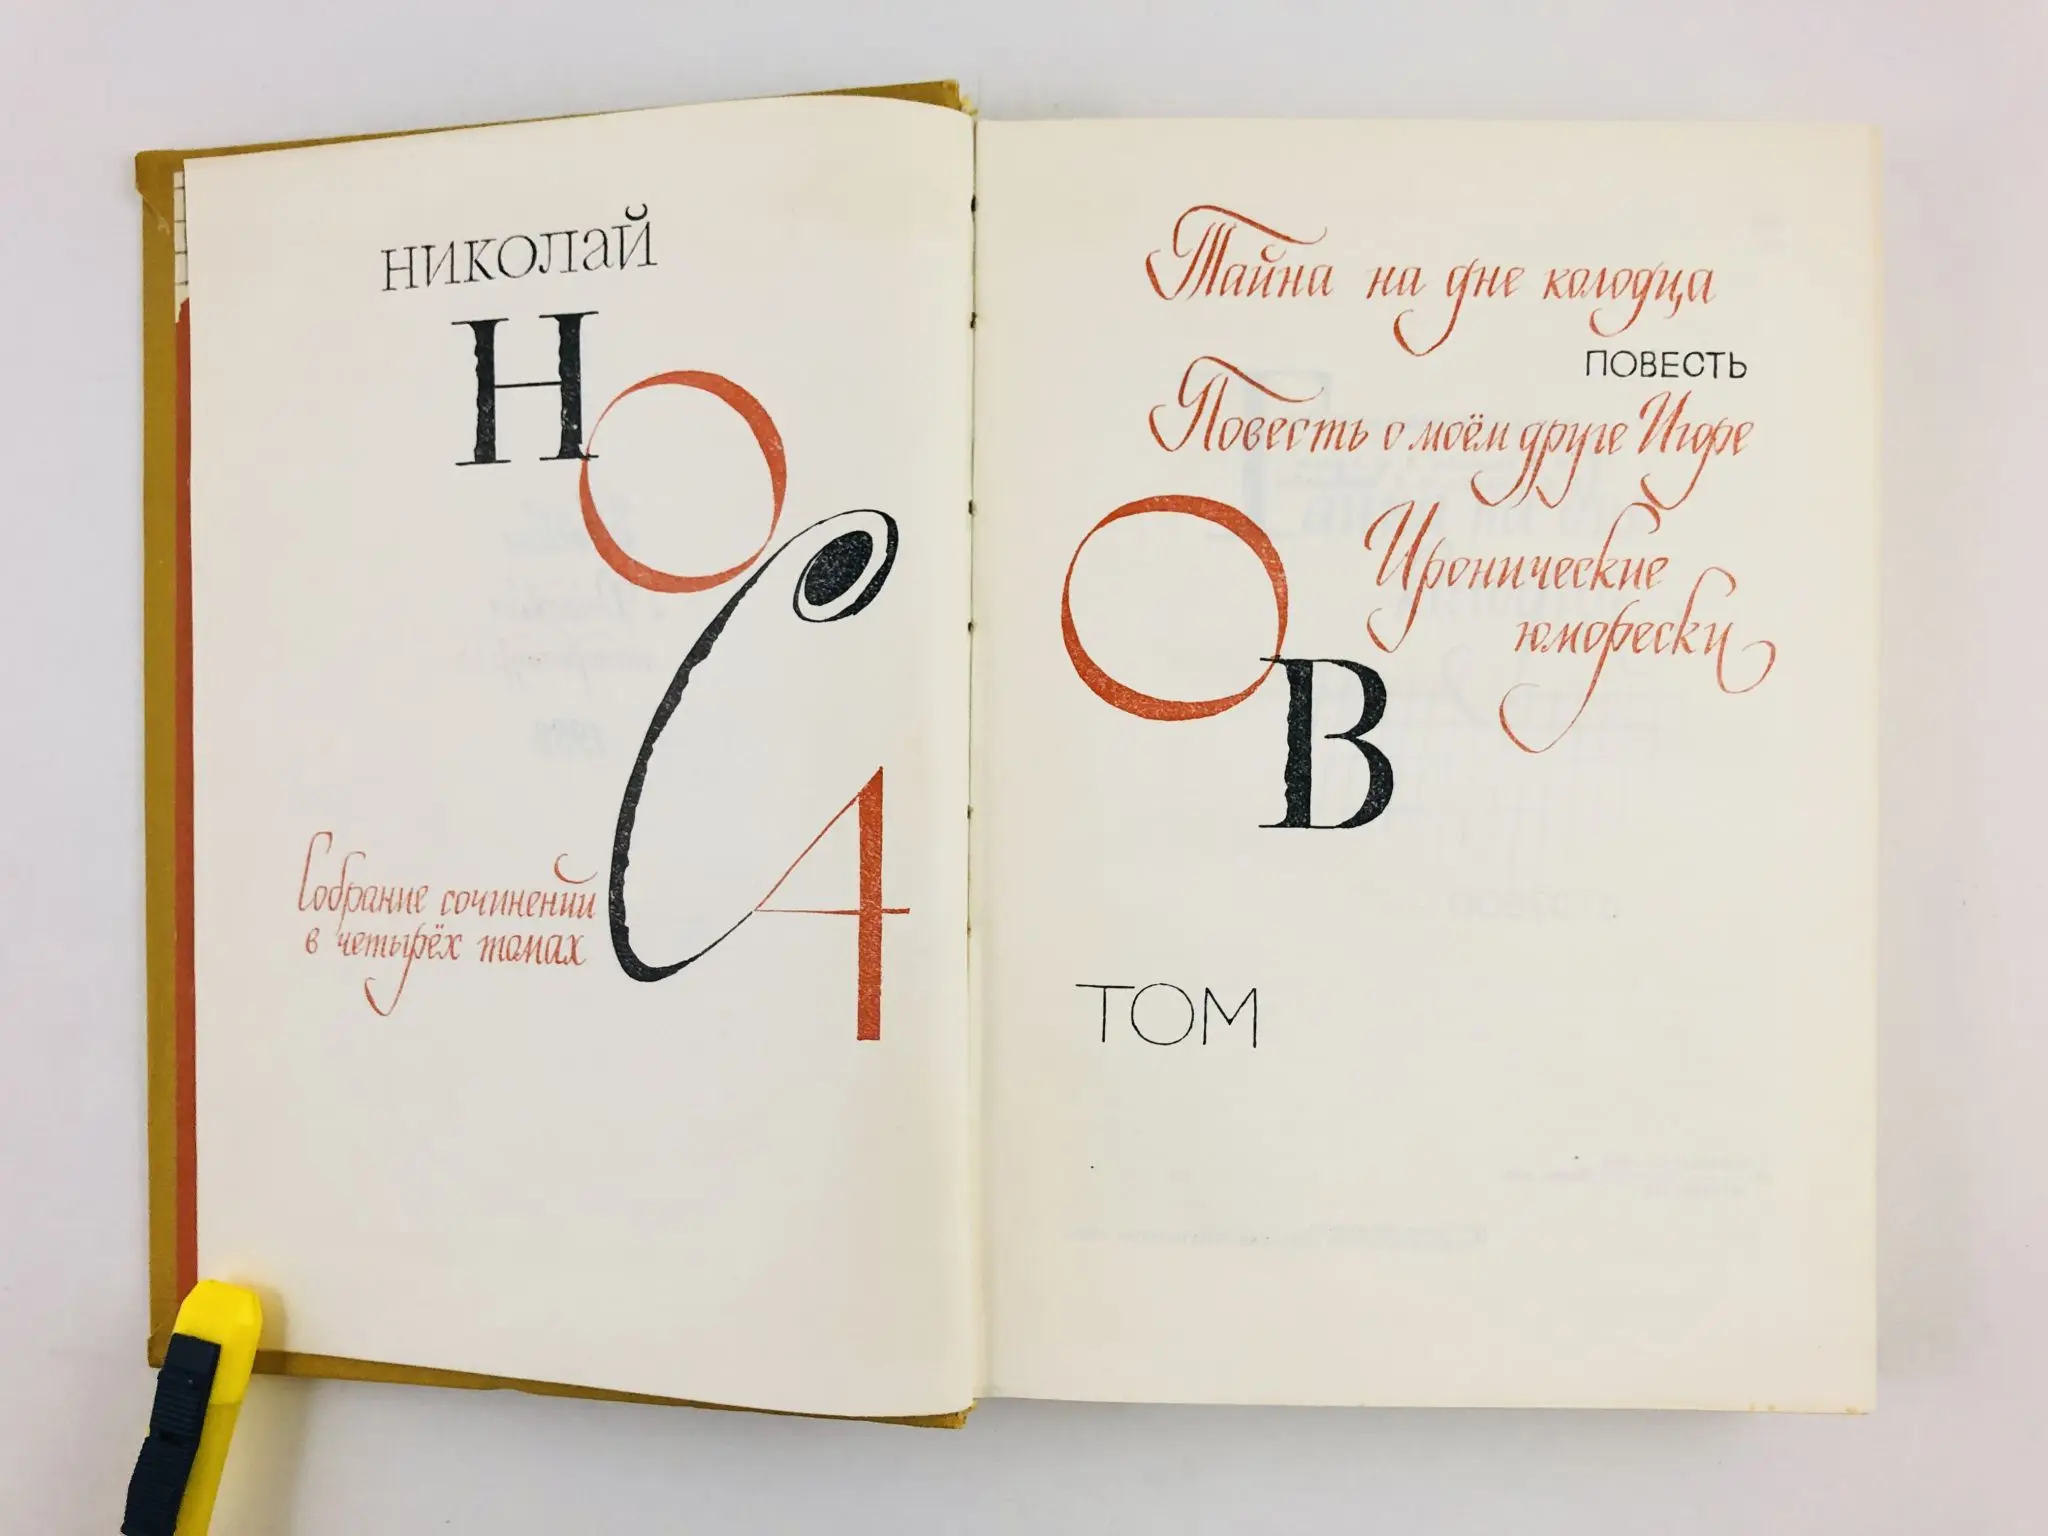 НИКОЛАЙ
НОСОВ
Собрание сочинений
в четырёх томах
4
Тайна на дне колодца
ПОВЕСТЬ
Повесть о моём друге Игоре
Иронические
юморески
ТОМ